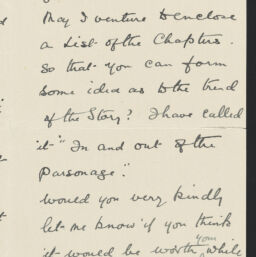 May I venture to enclose
a List of the Chapters.
So that you can form
some idea as to the trend
of the Story? I have called
it "In and out of the
Parsonage".
would you very kindly
let me know if you think
it would be worth your while